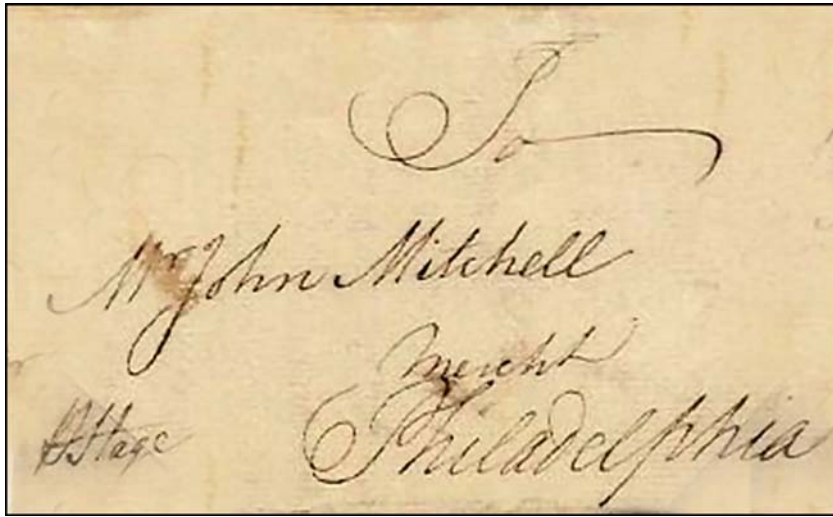 To
Mr John Mitchell
Mercht
Philadelphia
Stage